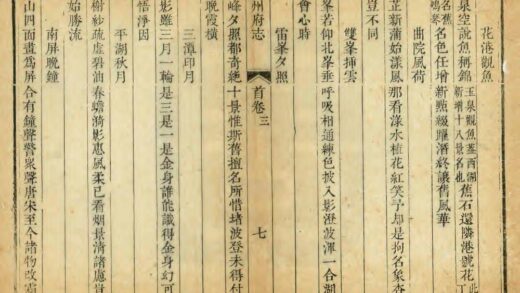 花港觀魚
泉空說魚稱錦玉泉觀魚葢西湖新增十八景名也蕉石還隣港號花
名色任增新點綴終讓舊風華
曲院風荷
芷新蒲始漾風那看漾水植花紅笑予却是拘名象
豈不同
雙峯插雲
峯若仰北峯垂呼吸相通練色披入影澄波渾一合湖
會心時
雷峯夕照
州府志 首卷三 七
峰夕照都奇絶十景惟斯舊擅名所惜堵波登未得付
晚霞橫
三潭印月
影雖三月一輪是三是一是金身誰能識得金身幻可
悟淨因
平湖秋月
榭紗疏虛碧油春蟾漪影惠風柔已看烟景清諸慮豈
始勝流
南屏晚鐘
山四面畫爲屏合有鐘聲警衆聲唐宋至今諸物改